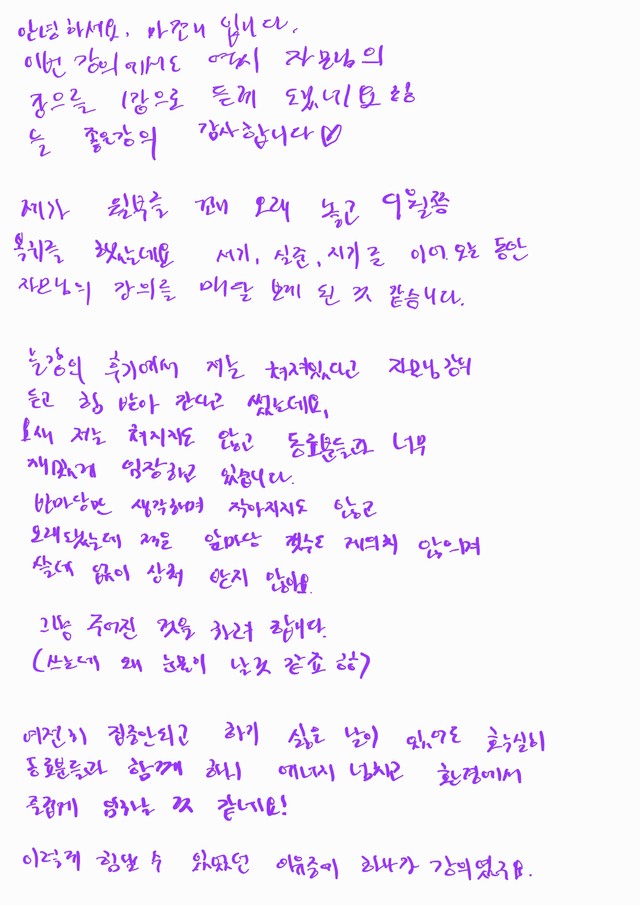 안녕하세요, 마꼬니 입니다.
이번 강의에서도 역시 자모님의
강의를 1강으로 듣게 됐네요 항
늘 좋은강의 감사합니다♡
제가 월부를 꽤 오래 놓고 9월쯤
복귀를 했었는데요 서기, 실준, 지기를 이어 오는 동안
자모님의 강의를 매달 보게 된 것 같습니다.
늘강의 후기에서 저는 쳐져있다고 자모님강의
듣고 힘 받아 간다고 썼는데요,
요새 저는 쳐지지도 않고 동료분들과 너무
재밌게 임장하고 있습니다.
반마당만 생각하며 작아지지도 않고
오래됐는데 적은 앞마당 갯수도 게의치 않으며
쓸데 없이 상처 받지 않아요.
그냥 주어진 것을 하려 합니다.
(쓰는데 왜 눈물이 날것 같죠 핳)
여전히 집중안되고 하기 싫은 날이 있어도 확실히
동료분들과 함께 하니 에너지 넘치고 환경에서
즐겁게 임하는 것 같네요!
이렇게 힘낼 수 있었던 이유중에 하나가 강의였구요.